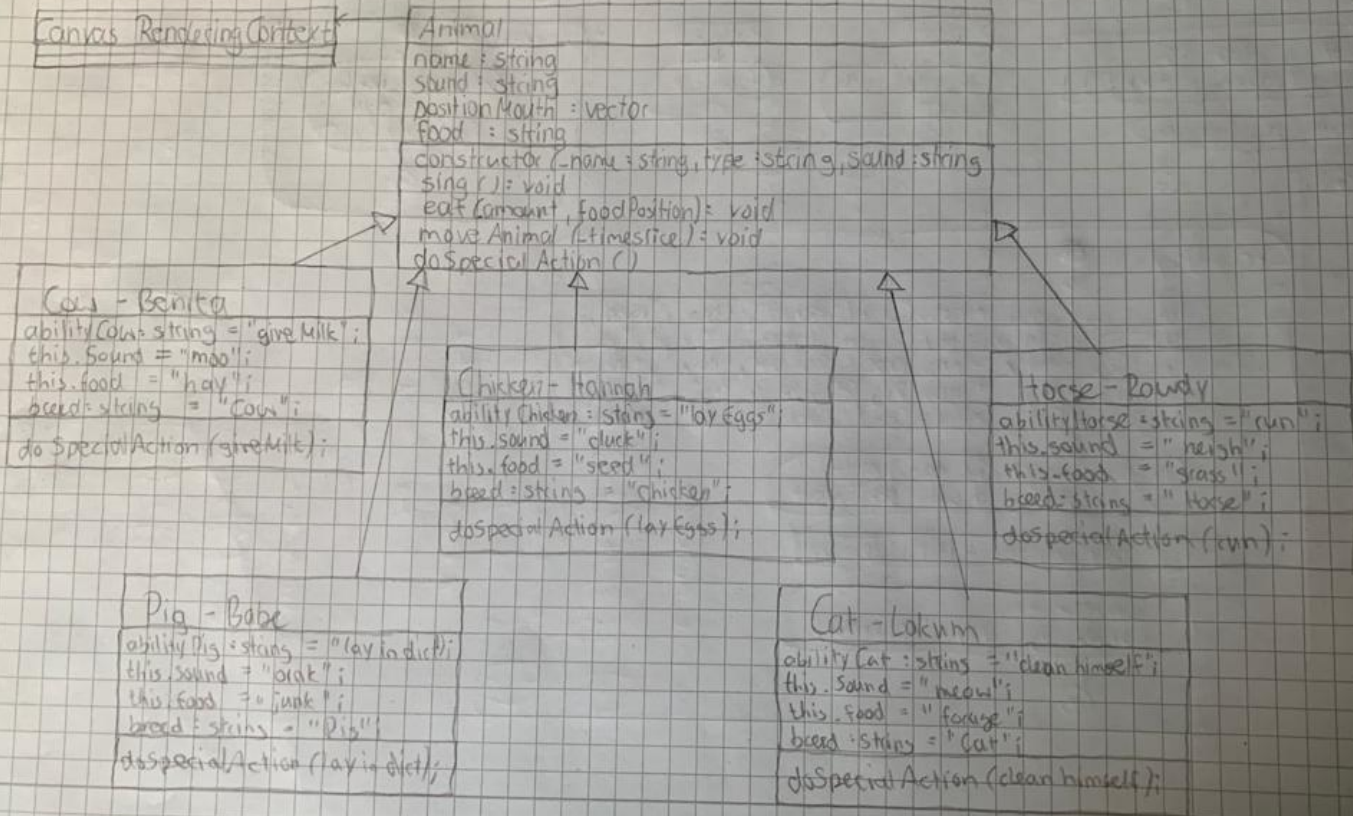 Canvas RenderingContext
Animal
name : string
sound : string
positionMouth : vector
food : string
constructor (_name : string, type : string, sound : string
sing () : void
eat (amount, foodPosition) : void
move Animal (_timeslice) : void
doSpecial Action ()
Cow - Benita
abilityCow : string = "giveMilk";
this.Sound = "moo";
this.food = "hay";
breed : string = "Cow";
do SpecialAction (giveMilk);
Chicken - Hannah
abilityChicken : string = "lay Eggs";
this.sound = "cluck";
this.food = "seed";
breed : string = "Chicken";
doSpecialAction (lay Eggs);
Horse - Rowdy
abilityHorse : string = "run";
this.sound = "neigh";
this.food = "grass";
breed : string = "Horse";
doSpecialAction (run);
Pig - Babe
abilityPig : string = "lay in dirt);
this.sound = "oink";
this.food = "junk";
breed : string = "Pig";
doSpecialAction (lay in dirt);
Cat - Lokum
abilityCat : string = "clean himself";
this.Sound = "meow";
this.food = "forage";
breed : string = "Cat";
doSpecialAction (clean himself);